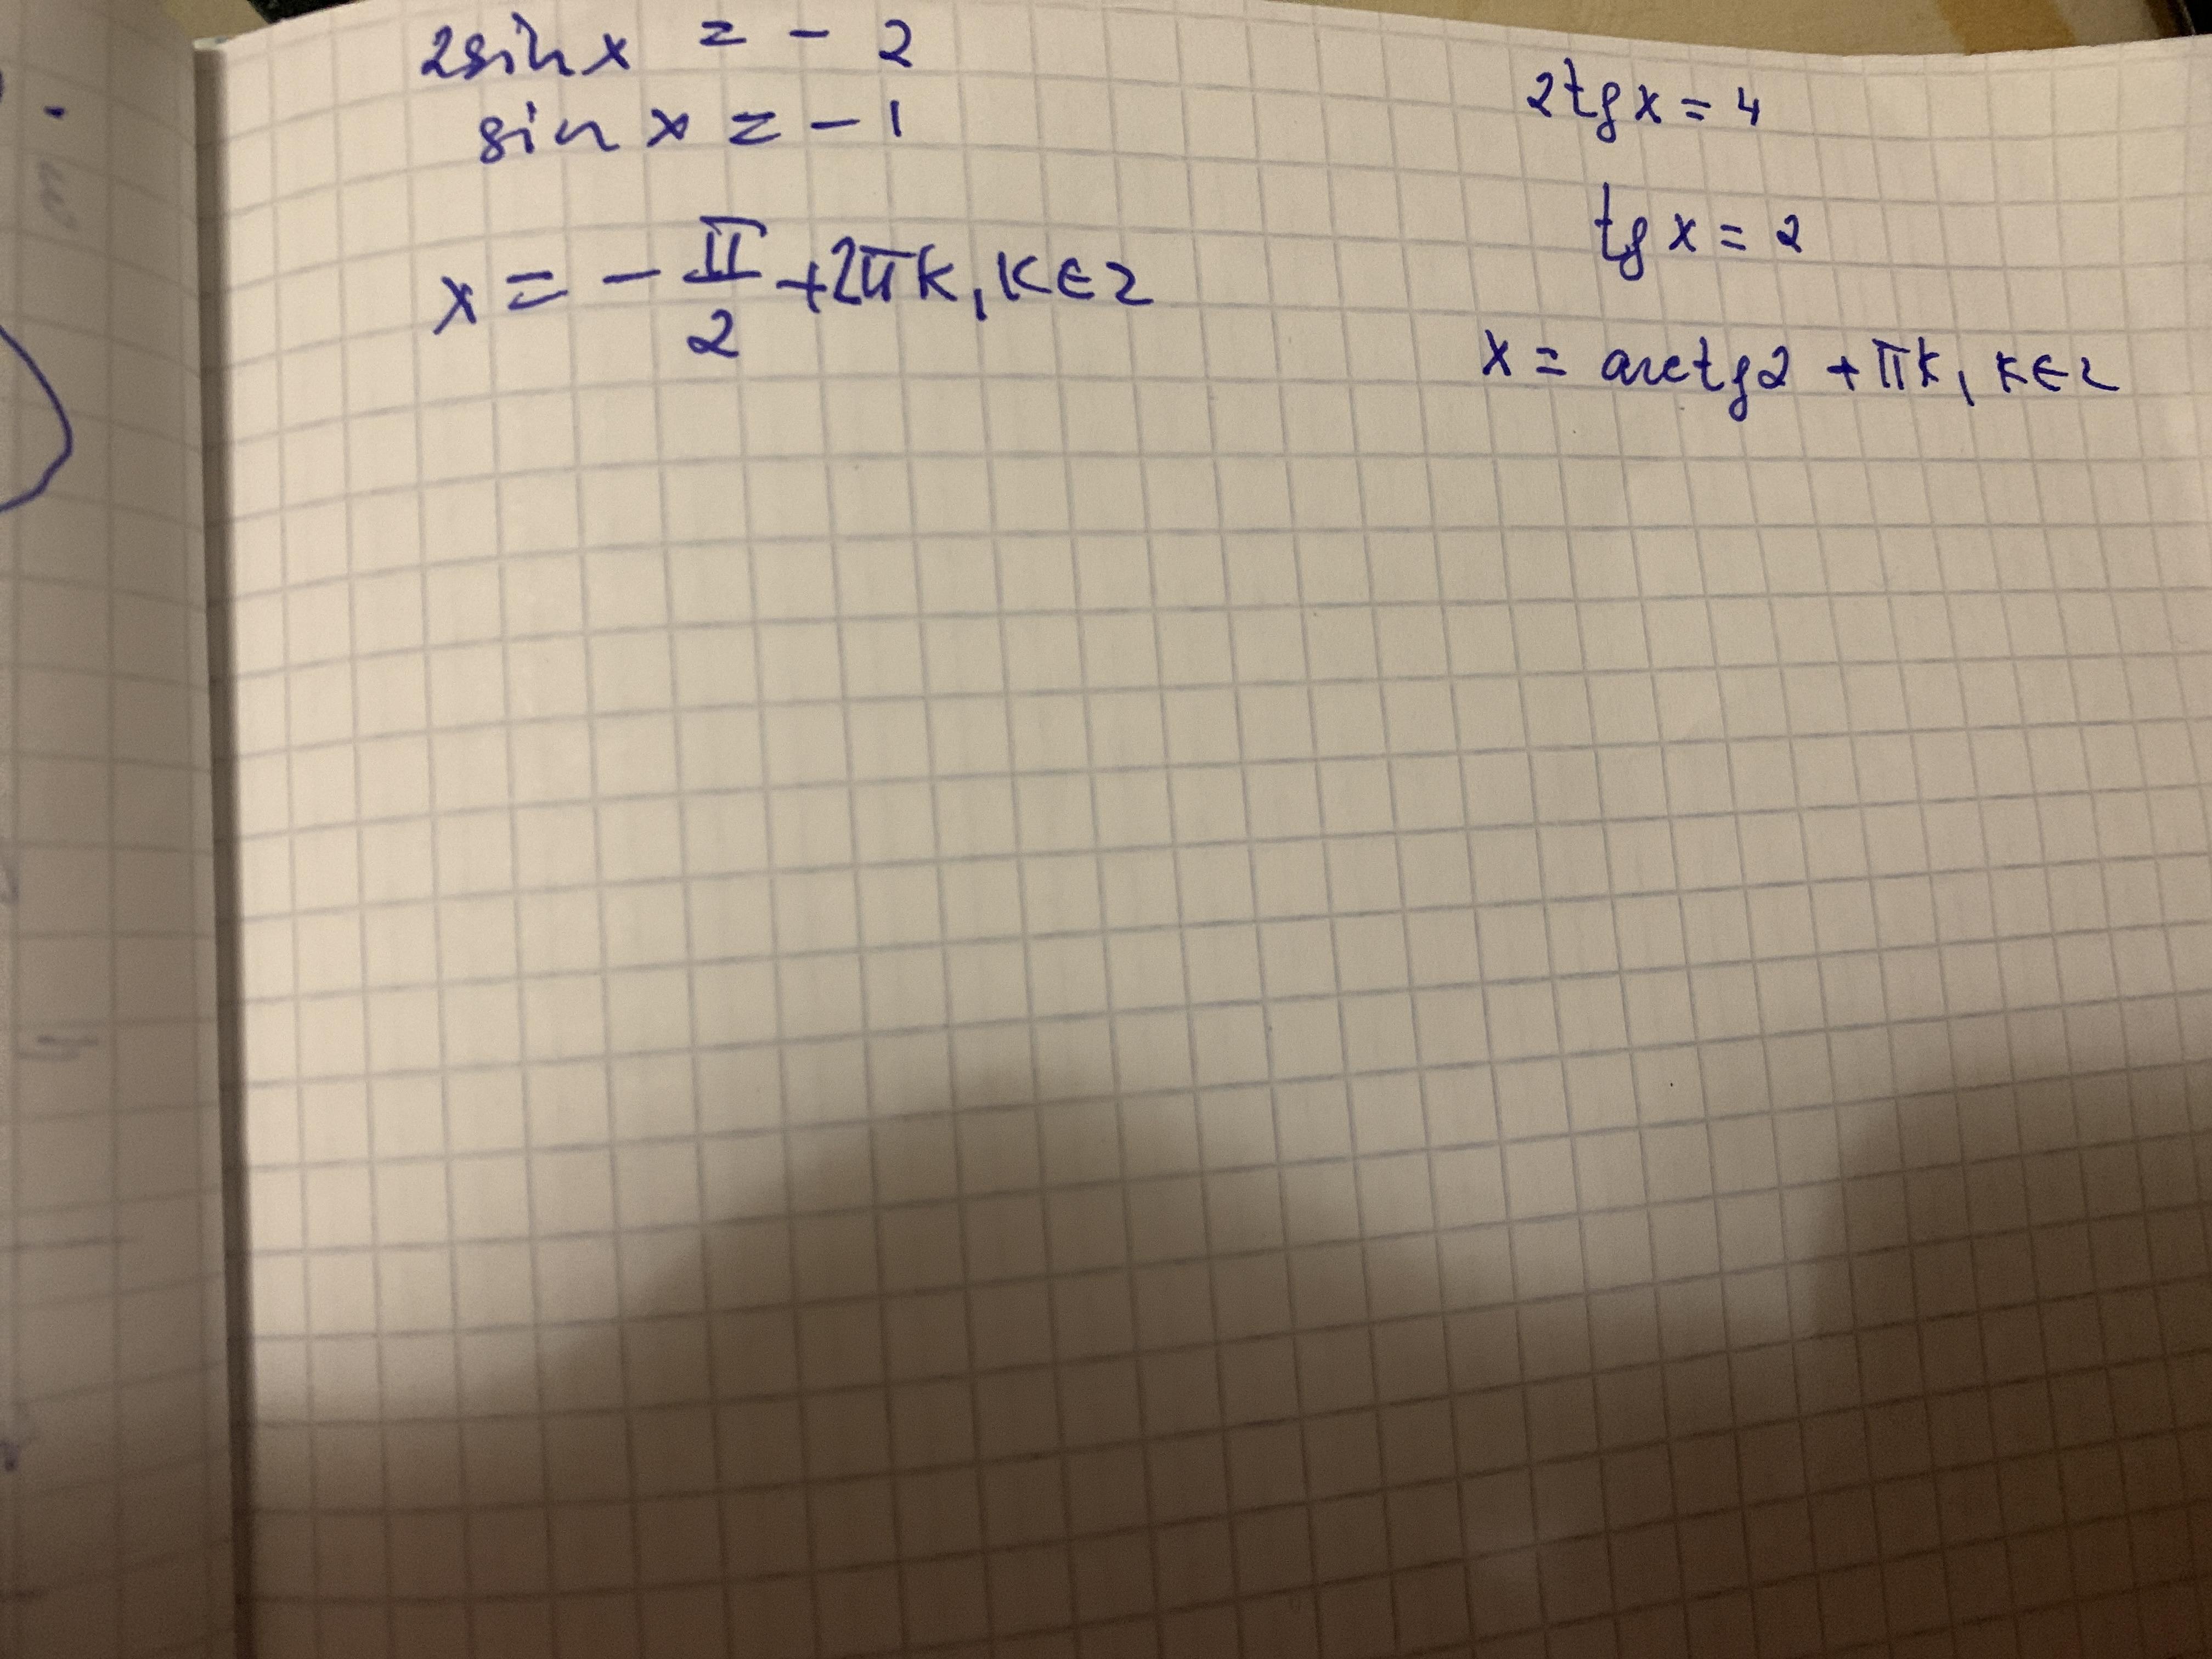 2sin x = - 2
sin x = - 1
x = - π/2 + 2πk, k ∈ Z
2tg x = 4
tg x = 2
x = arctg2 + πk, k ∈ Z